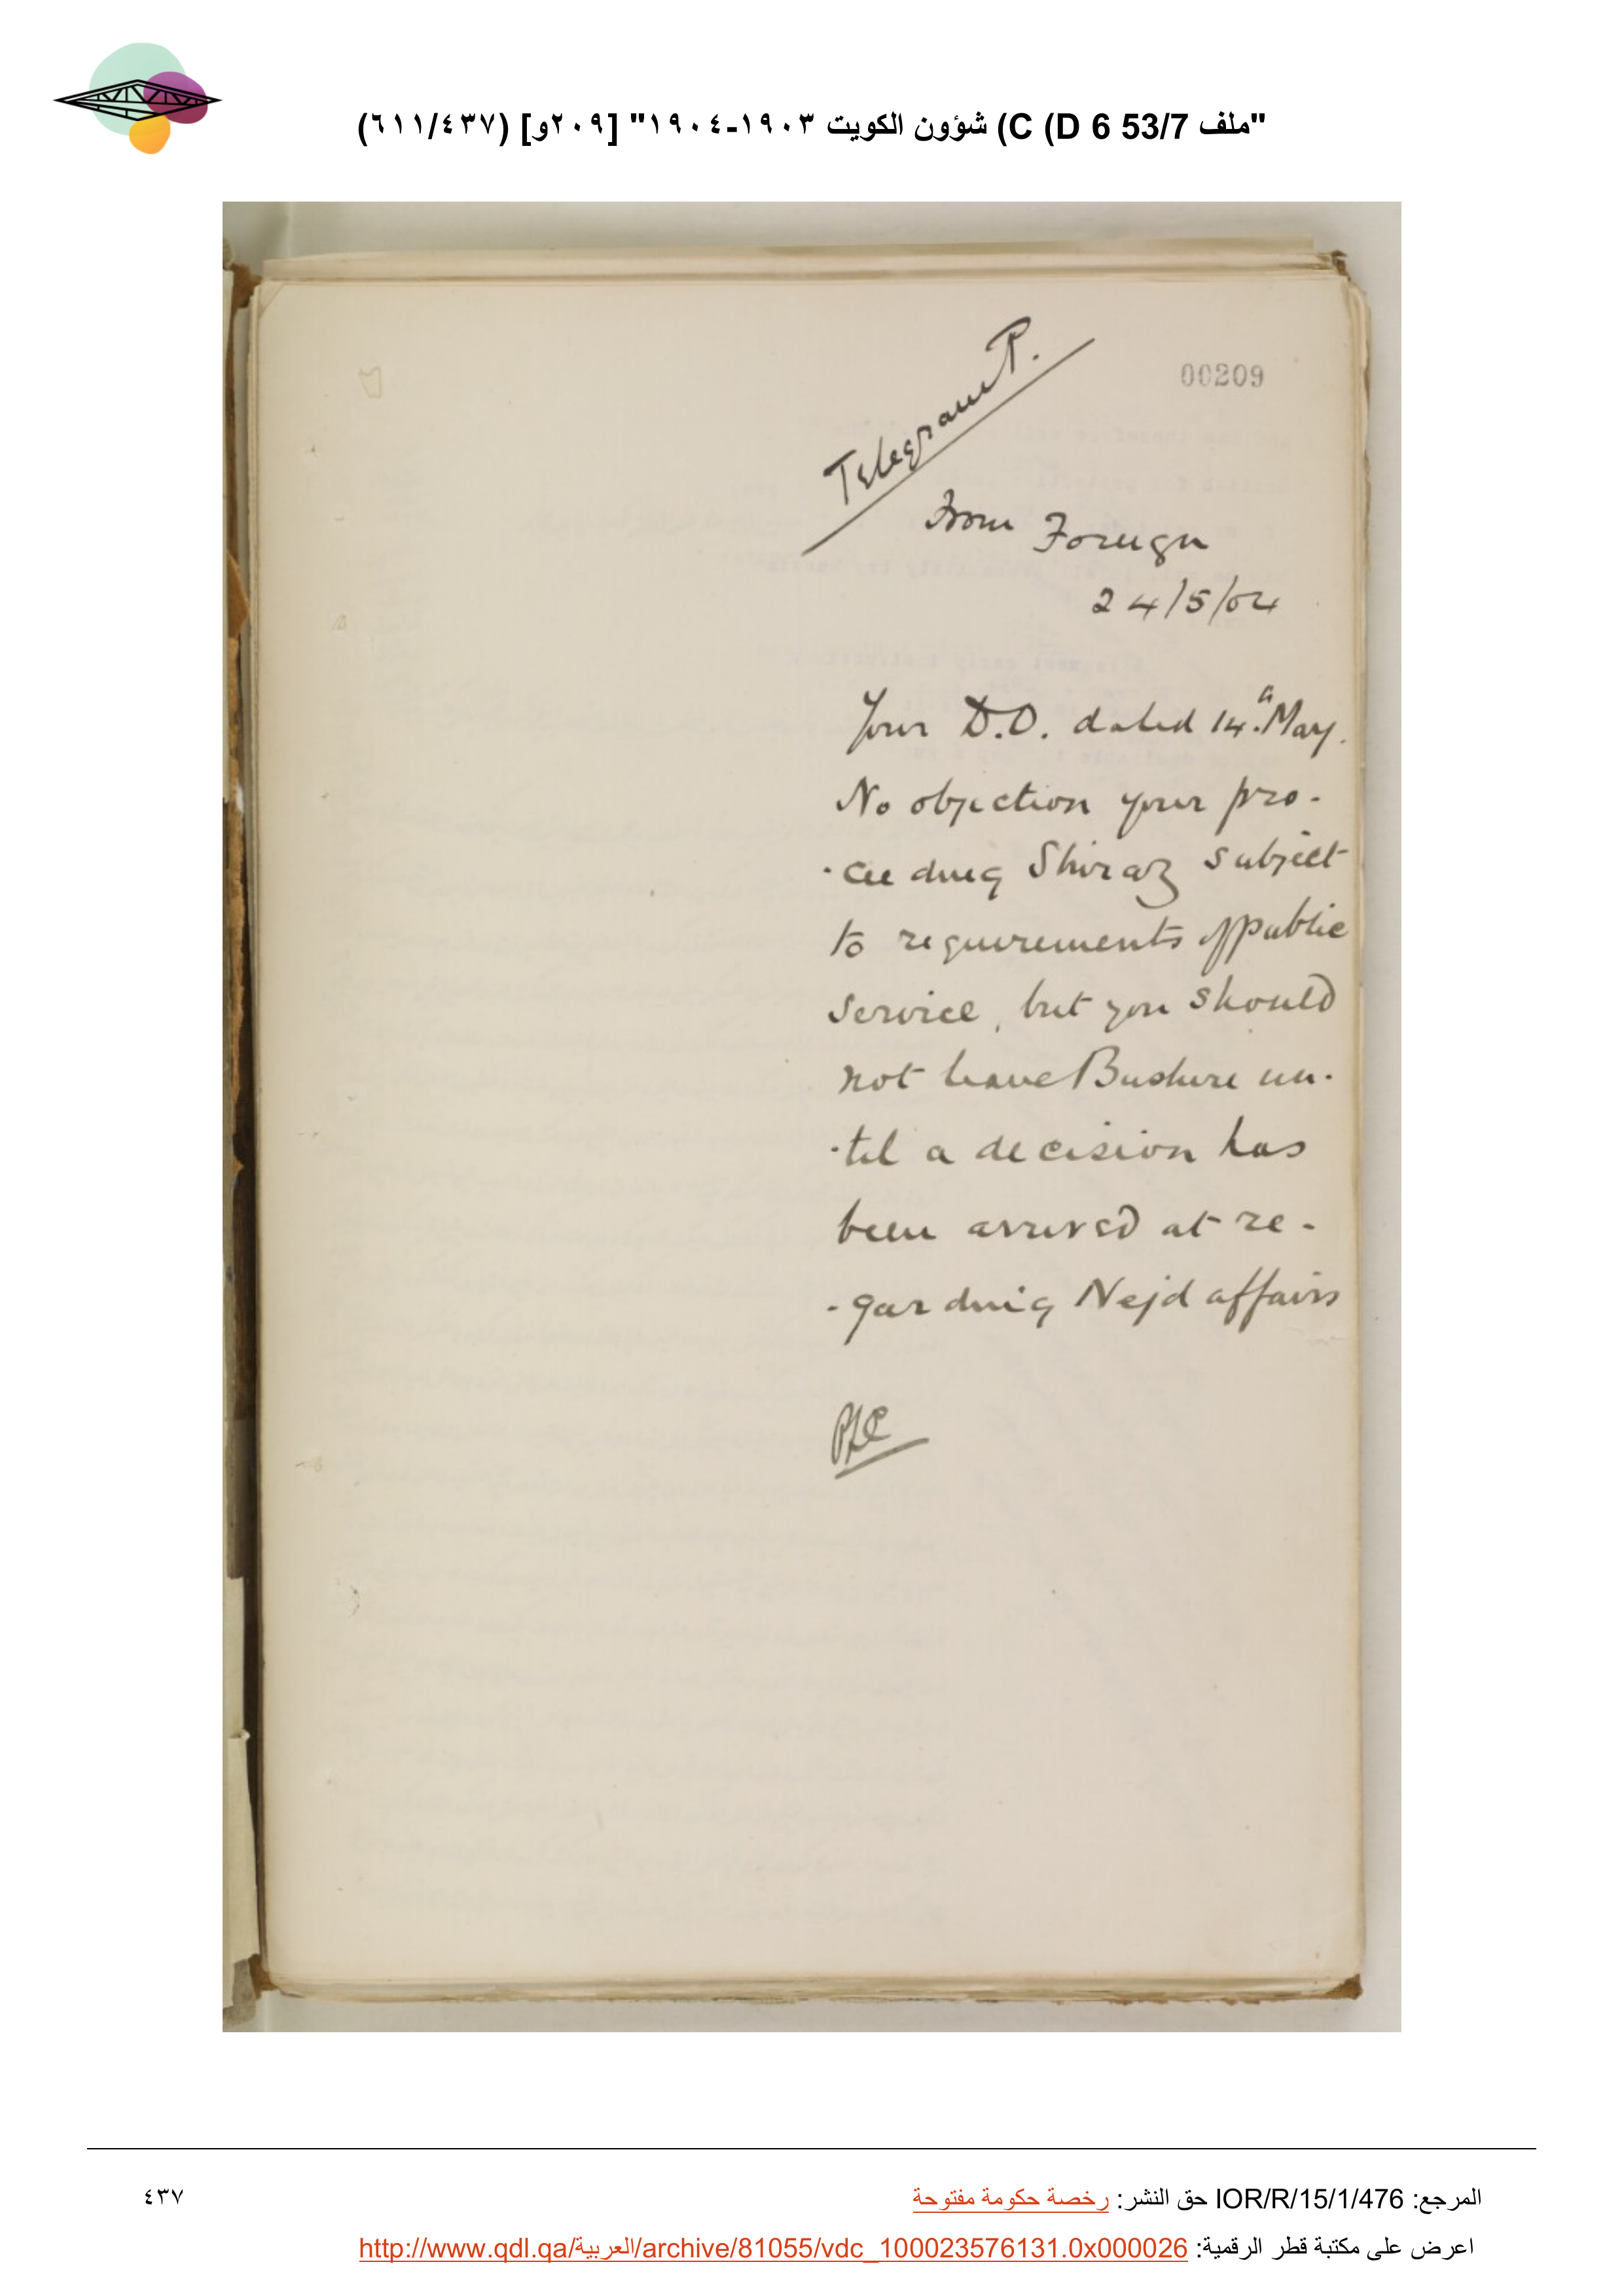 "ملف 53/7 C (D 6) شؤون الكويت ١٩٠٣-١٩٠٤" [٢٠٩و] (٦١١/٤٣٧)
00209
Telegram P.
From Foreign
24/5/04
Your D.O. dated 14th May.
No objection your pro-
-ceeding Shiraz subject
to requirements of public
service, but you should
not leave Bushire un-
-til a decision has
been arrived at re-
-garding Nejd affairs
PZC
المرجع: IOR/R/15/1/476 حق النشر: رخصة حكومة مفتوحة
٤٣٧
اعرض على مكتبة قطر الرقمية: http://www.qdl.qa/العربية/archive/81055/vdc_100023576131.0x000026